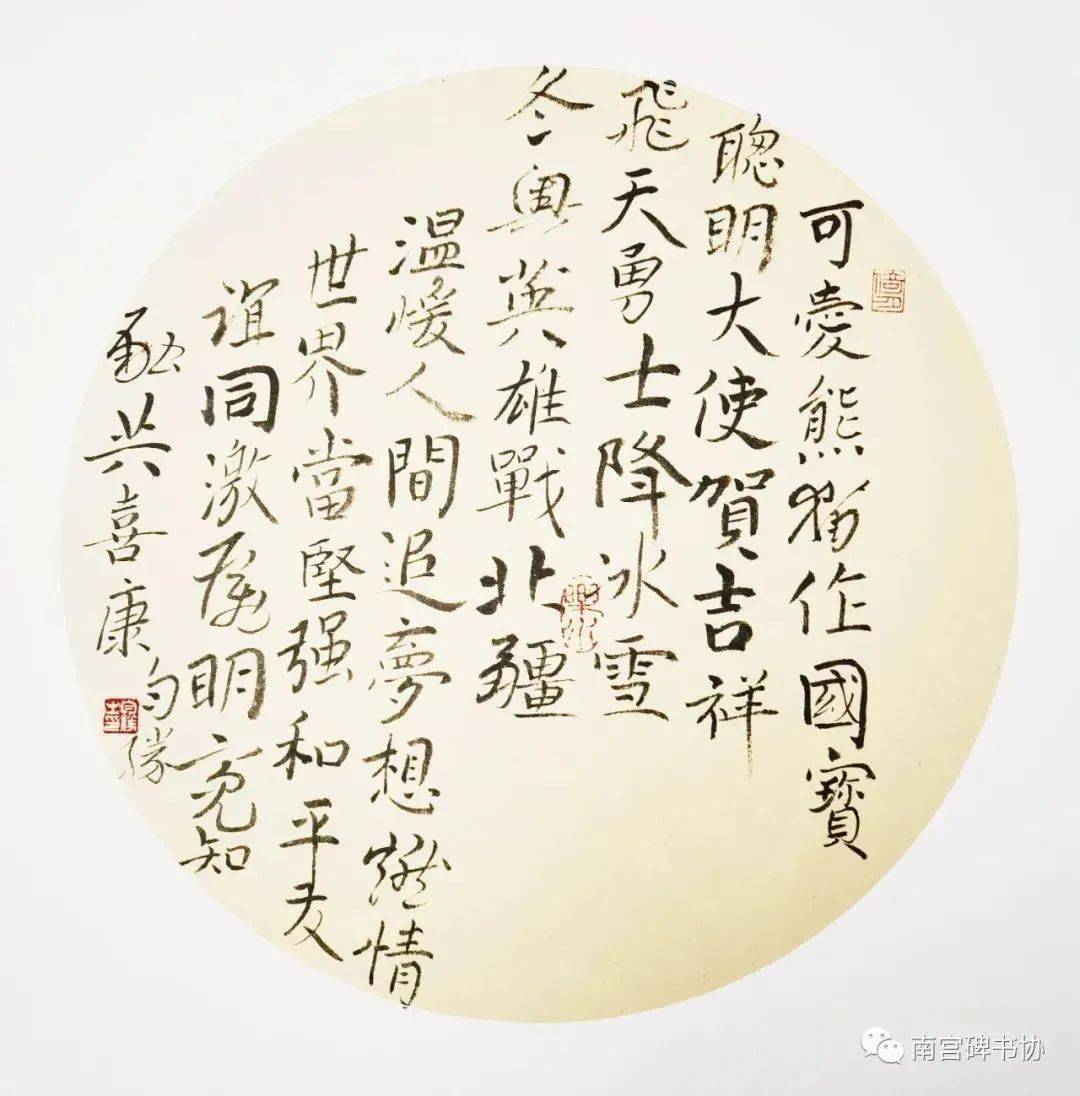 可愛熊猫作國寶
聰明大使賀吉祥
飛天勇士降冰雪
冬奥英雄戰北疆
温煖人間追夢想燃情
世界當堅强和平友
誼同激明亮知
共喜康
南宫碑书协